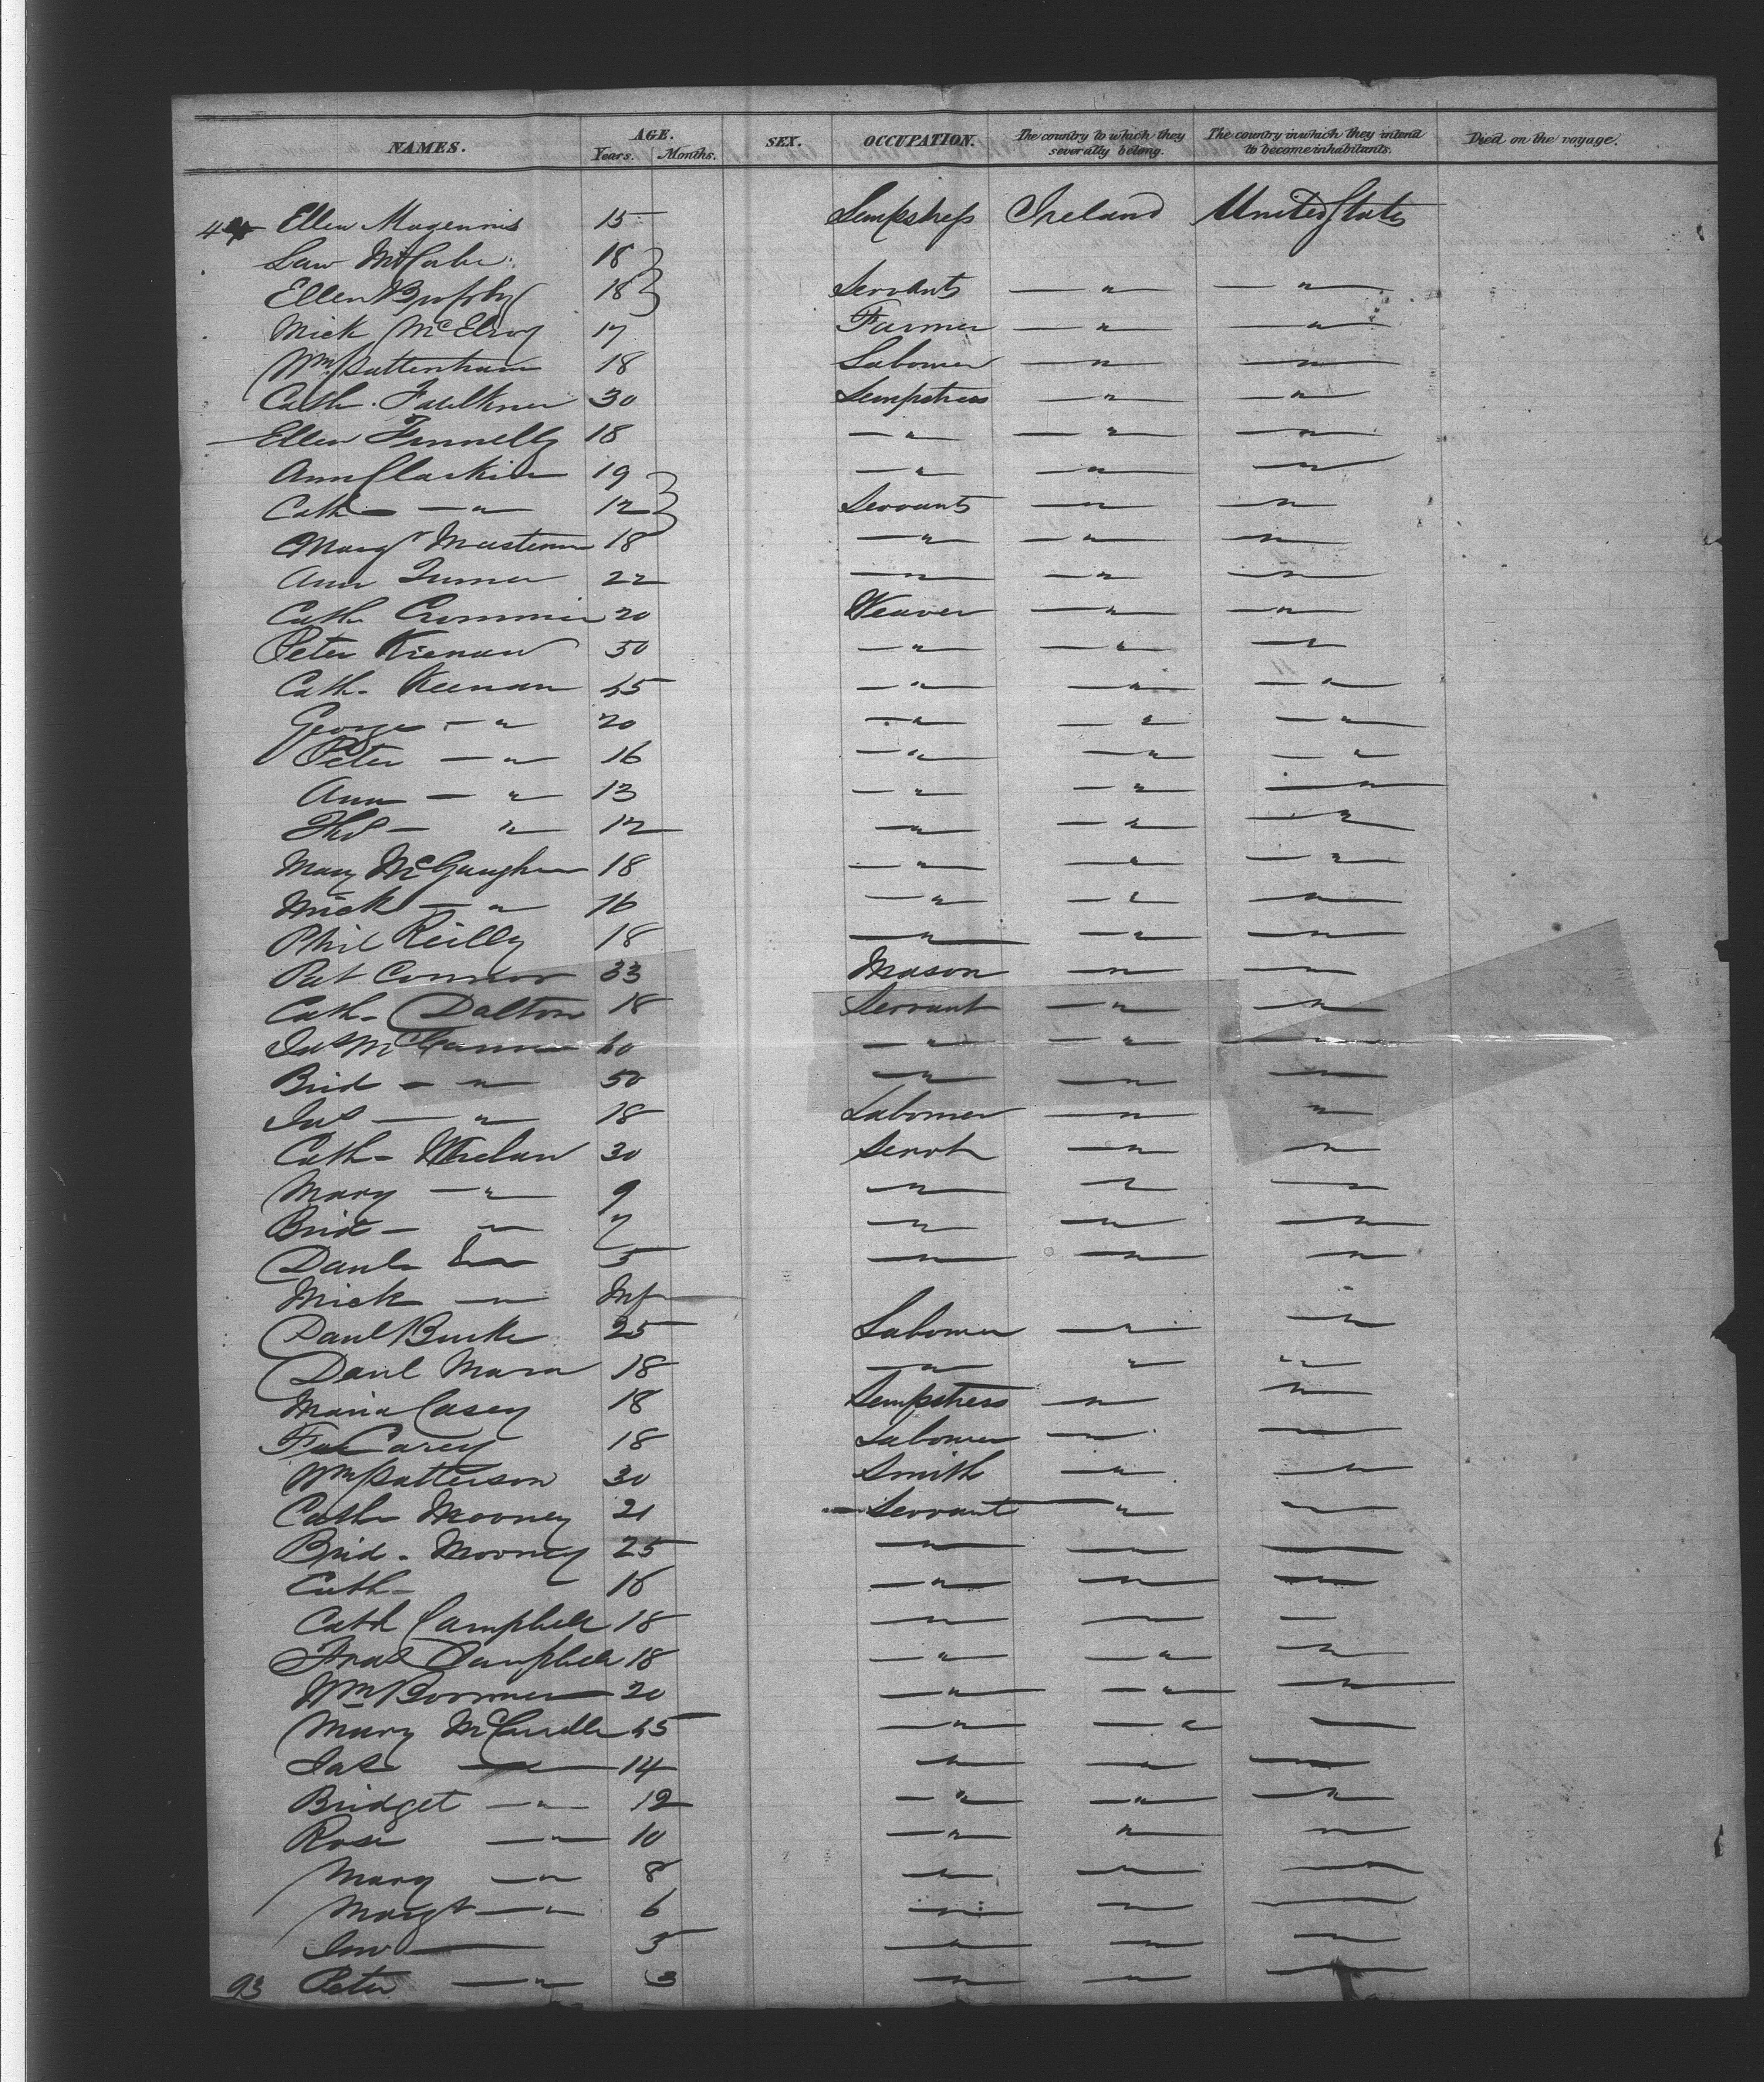 NAMES. AGE. Years. Months. SEX. OCCUPATION. The country to which they severally belong. The country in which they intend to become inhabitants. Died on the voyage.
44 Ellen Magennis 15 Sempstress Ireland United States
Law McCabe 18
Ellen 18 Servants — " — — " —
Mick McElroy 17 Farmer — " — — " —
Wm Pattenham 18 Labourer — " — — " —
Cath. Faulkner 30 Sempstress — " — — " —
Ellen Fennelly 18 — " — — " — — " —
Ann Clarkin 19 — " — — " — — " —
Cath — " — 12 Servants — " — — " —
Margt 18 — " — — " — — " —
Ann Turner 22 — " — — " — — " —
Cath Crommin 20 Weaver — " — — " —
Peter Kienan 50 — " — — " — — " —
Cath. Keenan 45 — " — — " — — " —
George — " 20 — " — — " — — " —
Peter — " — 16 — " — — " — — " —
Ann — " — 13 — " — — " — — " —
Thos — " — 12 — " — — " — — " —
Mary McGaughan 18 — " — — " — — " —
Mick — " — 16 — " — — " — — " —
Phil Reilly 18 — " — — " — — " —
Pat Connor 33 Mason — " — — " —
Cath. Dalton 18 Servant — " — — " —
Jas McCann 60 — " — — " — — " —
Brid — " — 50 — " — — " — — " —
Jas — " — 18 Labourer — " — — " —
Cath. Whelan 30 Servt — " — — " —
Mary — " — 9 — " — — " — — " —
Brid — " — 7 — " — — " — — " —
Danl 5 — " — — " — — " —
Mick — " — Inf — " —
Danl Burke 25 Labourer — " — — " —
Danl Mara 18 — " — " — " —
Maria Casey 18 Sempstress — " — — " —
Fra Carey 18 Labourer — " — — " —
Wm Patterson 30 Smith — " — — " —
Cath Mooney 21 Servant — " — — " —
Brid. Mooney 25 — " — — " — — " —
Cath — 16 — " — — " — — " —
Cath Campbell 18 — " — — " — —
Fras Campbell 18 — " — — " — — " —
Wm 20 — " — — " — — " —
Mary McCardle 45 — " — — " — —
Jas — " — 14 — " — — " — — " —
Bridget — " — 12 — " — — " — — " —
Rose — " — 10 — " — — " — — " —
Mary — " — 8 — " — — " — — " —
Margt — " — 6 — " — — " — —
Jno — 5 — " — — " — — " —
93 Peter — " — 3 — " — — " — — " —